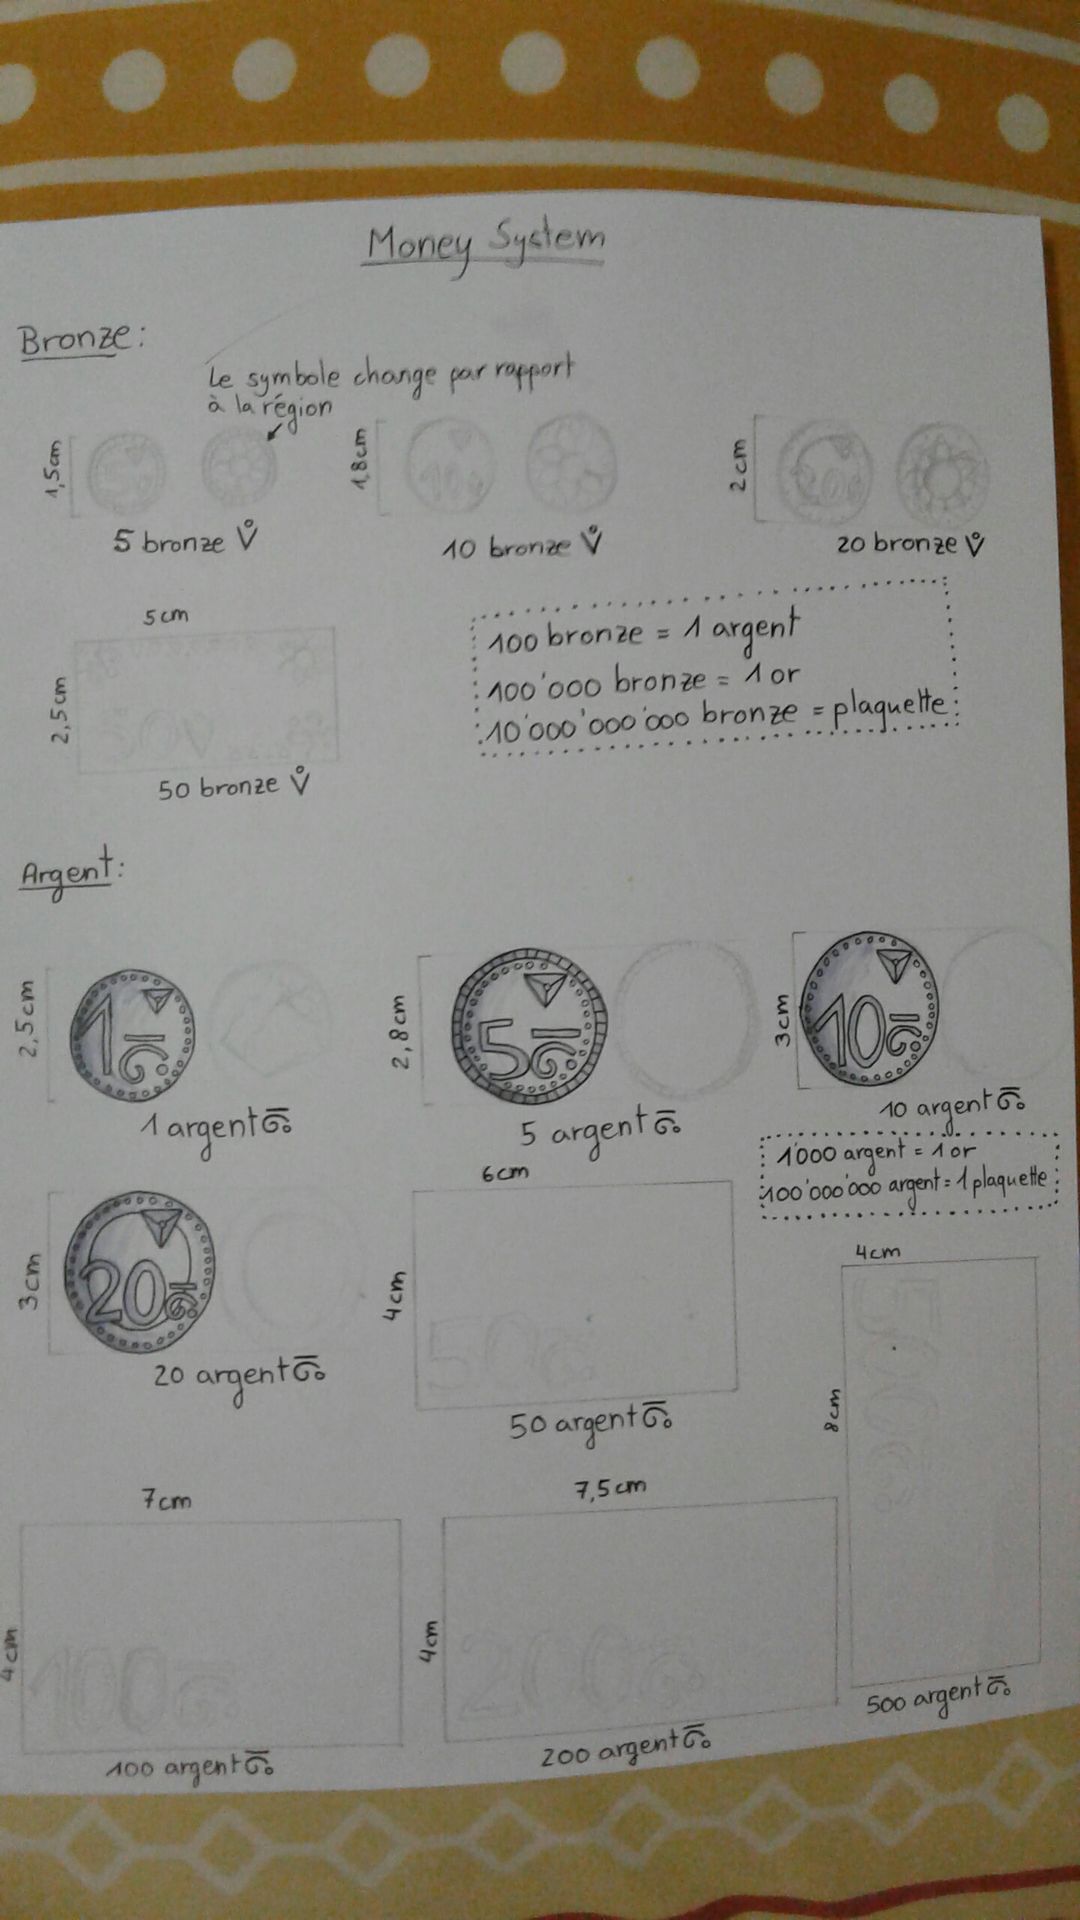 Money System
Bronze:
Le symbole change par rapport
à la région
1,5cm
1,8cm
10
2cm
20
5 bronze V̊
10 bronze V̊
20 bronze V̊
5cm
2,5cm
50 bronze V̊
100 bronze = 1 argent
100'000 bronze = 1 or
10'000'000'000 bronze = plaquette
Argent:
2,5cm
1
2,8cm
5
3cm
10
1 argent
5 argent
10 argent
1'000 argent = 1 or
100'000'000 argent = 1 plaquette
3cm
20
20 argent
6cm
4cm
50
50 argent
4cm
8cm
500
500 argent
7cm
4cm
100
100 argent
7,5cm
4cm
200
200 argent